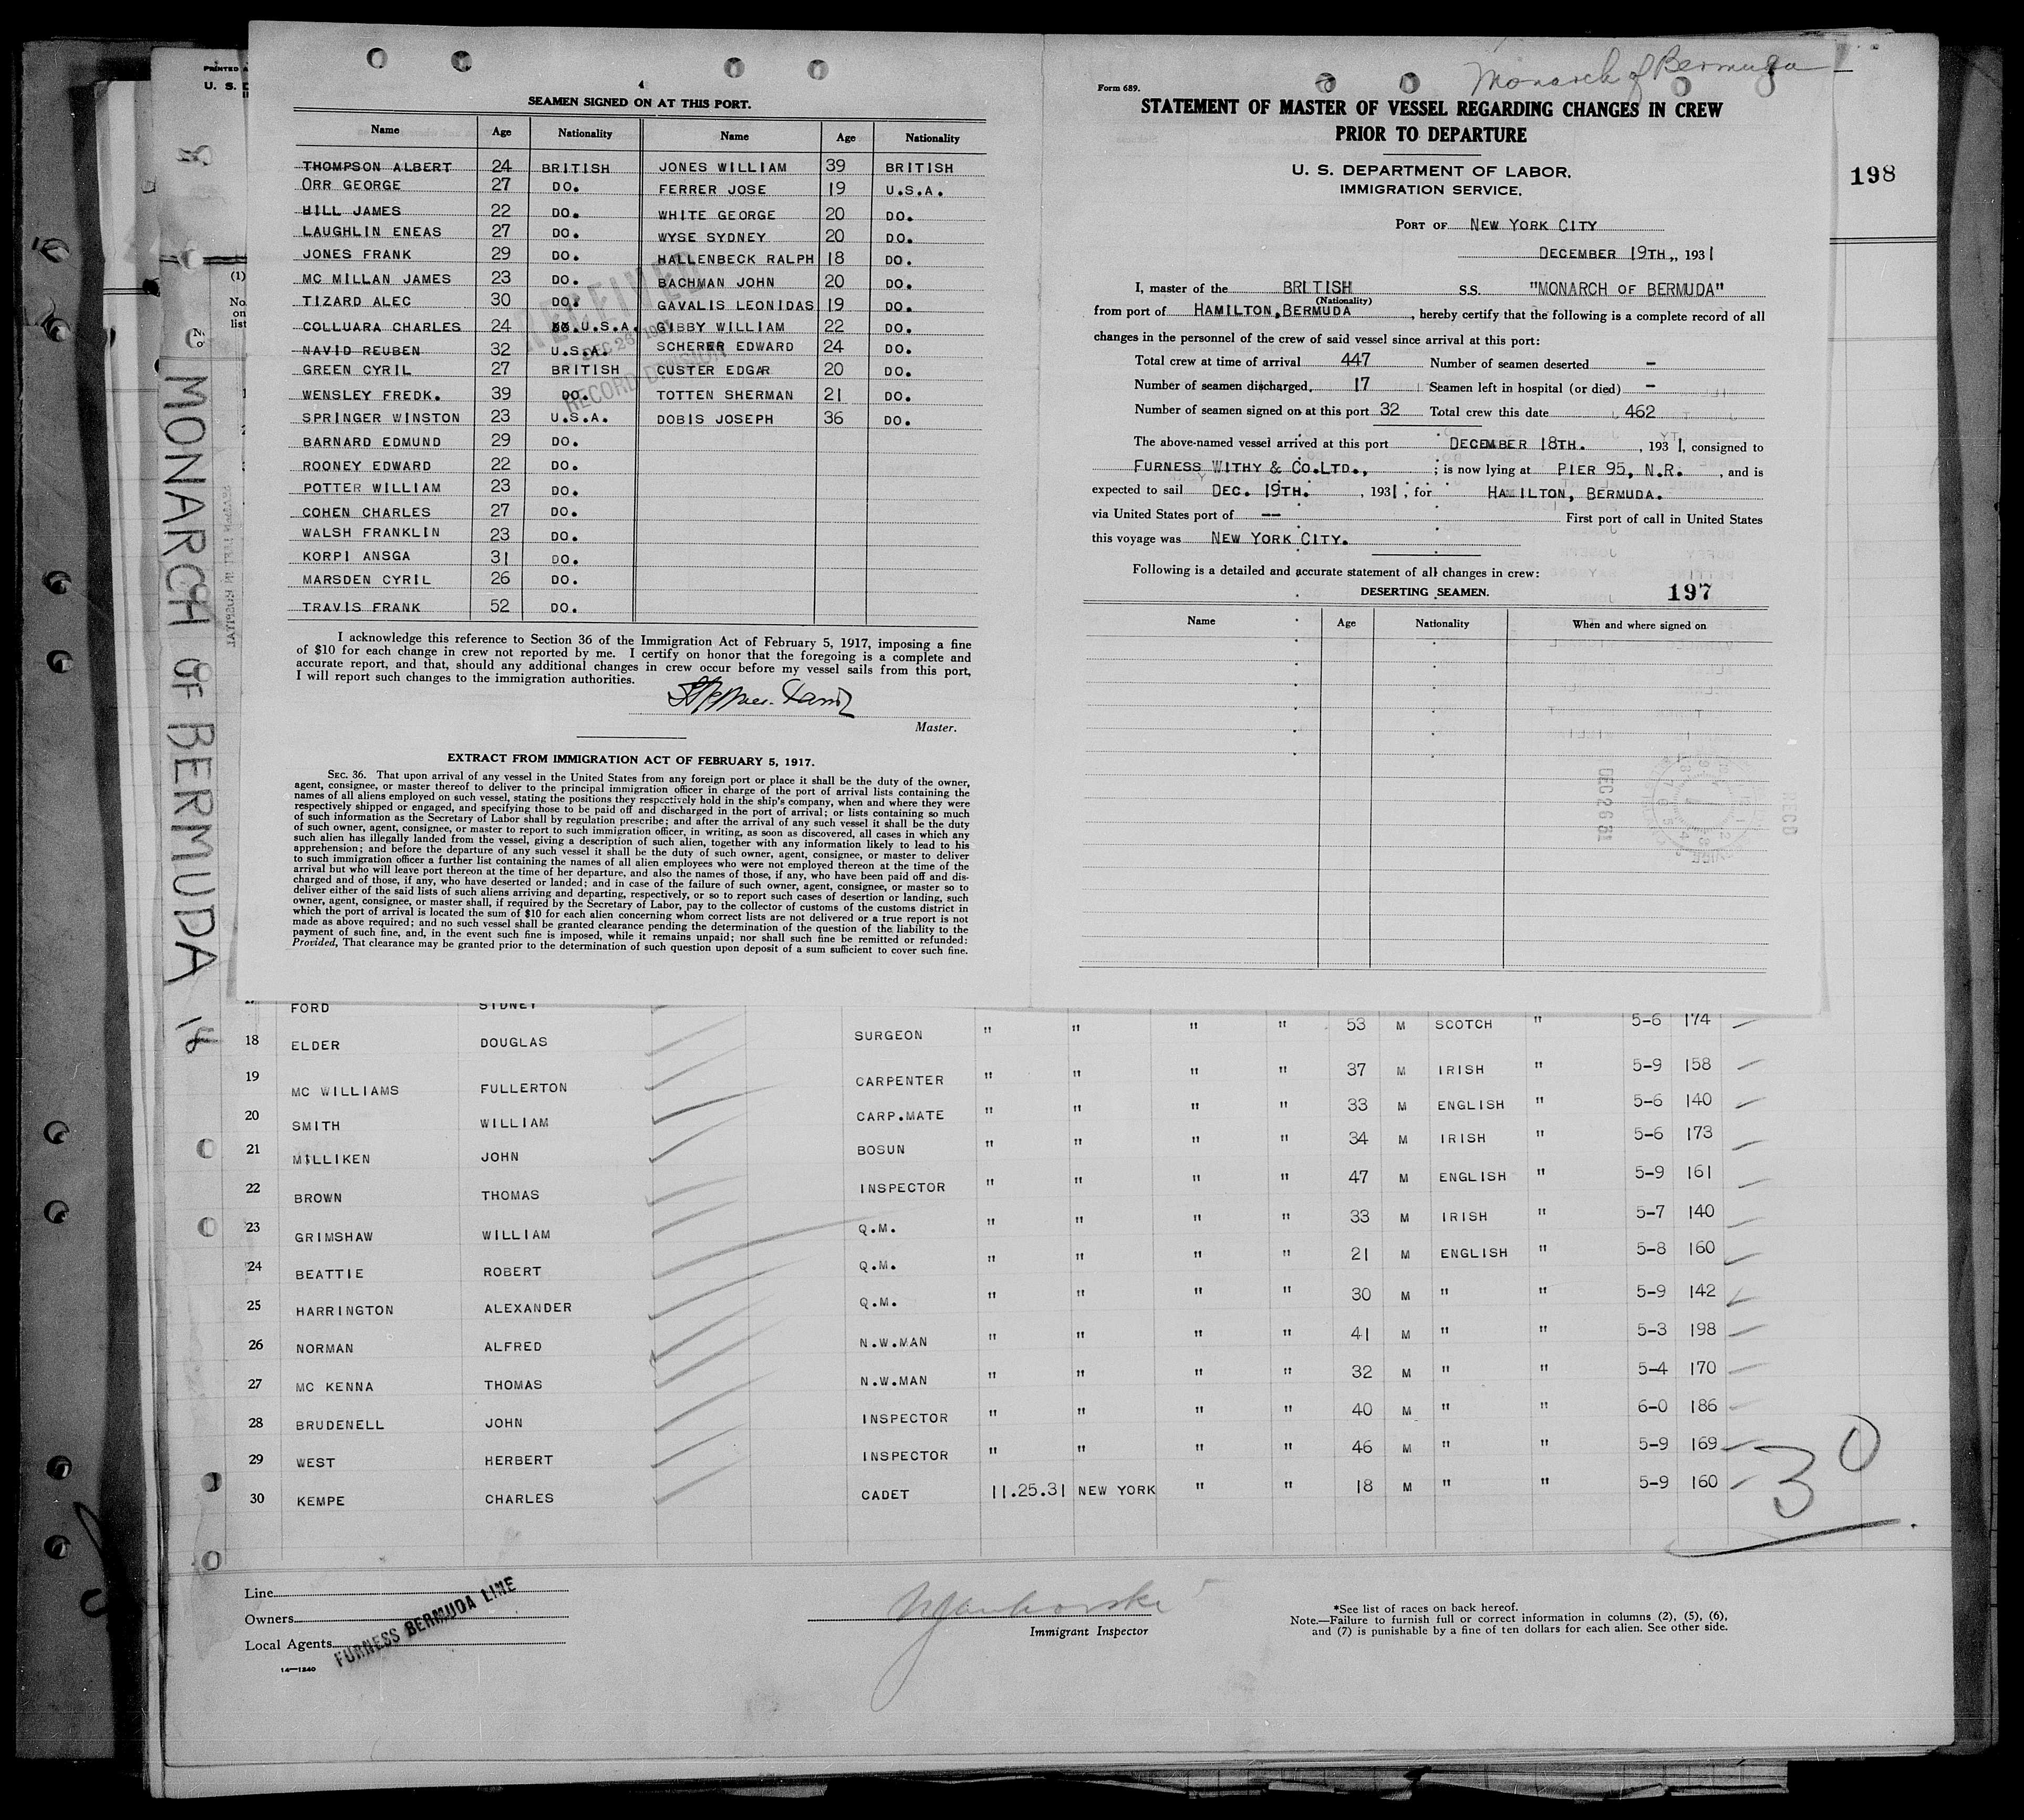 PRINTED
U. S. D
(1)
No.
on
list
MONARCH OF BERMUDA 18
4
SEAMEN SIGNED ON AT THIS PORT.
Name Age Nationality Name Age Nationality
THOMPSON ALBERT 24 BRITISH JONES WILLIAM 39 BRITISH
ORR GEORGE 27 DO. FERRER JOSE 19 U.S.A.
HILL JAMES 22 DO. WHITE GEORGE 20 DO.
LAUGHLIN ENEAS 27 DO. WYSE SYDNEY 20 DO.
JONES FRANK 29 DO. HALLENBECK RALPH 18 DO.
MC MILLAN JAMES 23 DO. BACHMAN JOHN 20 DO.
TIZARD ALEC 30 DO. GAVALIS LEONIDAS 19 DO.
COLLUARA CHARLES 24 U.S.A. GIBBY WILLIAM 22 DO.
NAVID REUBEN 32 U.S.A. SCHERER EDWARD 24 DO.
GREEN CYRIL 27 BRITISH CUSTER EDGAR 20 DO.
WENSLEY FREDK. 39 DO. TOTTEN SHERMAN 21 DO.
SPRINGER WINSTON 23 U.S.A. DOBIS JOSEPH 36 DO.
BARNARD EDMUND 29 DO.
ROONEY EDWARD 22 DO.
POTTER WILLIAM 23 DO.
COHEN CHARLES 27 DO.
WALSH FRANKLIN 23 DO.
KORPI ANSGA 31 DO.
MARSDEN CYRIL 26 DO.
TRAVIS FRANK 52 DO.
RECEIVED
RECORD DIVISION
I acknowledge this reference to Section 36 of the Immigration Act of February 5, 1917, imposing a fine
of $10 for each change in crew not reported by me. I certify on honor that the foregoing is a complete and
accurate report, and that, should any additional changes in crew occur before my vessel sails from this port,
I will report such changes to the immigration authorities.
Master.
EXTRACT FROM IMMIGRATION ACT OF FEBRUARY 5, 1917.
SEC. 36. That upon arrival of any vessel in the United States from any foreign port or place it shall be the duty of the owner,
agent, consignee, or master thereof to deliver to the principal immigration officer in charge of the port of arrival lists containing the
names of all aliens employed on such vessel, stating the positions they respectively hold in the ship's company, when and where they were
respectively shipped or engaged, and specifying those to be paid off and discharged in the port of arrival; or lists containing so much
of such information as the Secretary of Labor shall by regulation prescribe; and after the arrival of any such vessel it shall be the duty
of such owner, agent, consignee, or master to report to such immigration officer, in writing, as soon as discovered, all cases in which any
such alien has illegally landed from the vessel, giving a description of such alien, together with any information likely to lead to his
apprehension; and before the departure of any such vessel it shall be the duty of such owner, agent, consignee, or master to deliver
to such immigration officer a further list containing the names of all alien employees who were not employed thereon at the time of the
arrival but who will leave port thereon at the time of her departure, and also the names of those, if any, who have been paid off and dis-
charged and of those, if any, who have deserted or landed; and in case of the failure of such owner, agent, consignee, or master so to
deliver either of the said lists of such aliens arriving and departing, respectively, or so to report such cases of desertion or landing, such
owner, agent, consignee, or master shall, if required by the Secretary of Labor, pay to the collector of customs of the customs district in
which the port of arrival is located the sum of $10 for each alien concerning whom correct lists are not delivered or a true report is not
made as above required; and no such vessel shall be granted clearance pending the determination of the question of the liability to the
payment of such fine, and, in the event such fine is imposed, while it remains unpaid; nor shall such fine be remitted or refunded:
Provided, That clearance may be granted prior to the determination of such question upon deposit of a sum sufficient to cover such fine.
Monarch of Bermuda
Form 689.
STATEMENT OF MASTER OF VESSEL REGARDING CHANGES IN CREW
PRIOR TO DEPARTURE
U. S. DEPARTMENT OF LABOR.
IMMIGRATION SERVICE.
198
PORT OF NEW YORK CITY
DECEMBER 19TH., 1931
I, master of the BRITISH S.S. "MONARCH OF BERMUDA"
(Nationality)
from port of HAMILTON, BERMUDA, hereby certify that the following is a complete record of all
changes in the personnel of the crew of said vessel since arrival at this port:
Total crew at time of arrival 447 Number of seamen deserted –
Number of seamen discharged. 17 Seamen left in hospital (or died) –
Number of seamen signed on at this port 32 Total crew this date 462
The above-named vessel arrived at this port DECEMBER 18TH., 1931, consigned to
FURNESS WITHY & CO.LTD., ; is now lying at PIER 95, N.R., and is
expected to sail DEC. 19TH., 1931, for HAMILTON, BERMUDA.
via United States port of -- First port of call in United States
this voyage was NEW YORK CITY.
Following is a detailed and accurate statement of all changes in crew:
DESERTING SEAMEN. 197
Name Age Nationality When and where signed on
DEC 26 31
REC'D
FORD SIDNEY
18 ELDER DOUGLAS SURGEON " " " " 53 M SCOTCH " 5-6 174
19 MC WILLIAMS FULLERTON CARPENTER " " " " 37 M IRISH " 5-9 158
20 SMITH WILLIAM CARP.MATE " " " " 33 M ENGLISH " 5-6 140
21 MILLIKEN JOHN BOSUN " " " " 34 M IRISH " 5-6 173
22 BROWN THOMAS INSPECTOR " " " " 47 M ENGLISH " 5-9 161
23 GRIMSHAW WILLIAM Q.M. " " " " 33 M IRISH " 5-7 140
24 BEATTIE ROBERT Q.M. " " " " 21 M ENGLISH " 5-8 160
25 HARRINGTON ALEXANDER Q.M. " " " " 30 M " " 5-9 142
26 NORMAN ALFRED N.W.MAN " " " " 41 M " " 5-3 198
27 MC KENNA THOMAS N.W.MAN " " " " 32 M " " 5-4 170
28 BRUDENELL JOHN INSPECTOR " " " " 40 M " " 6-0 186
29 WEST HERBERT INSPECTOR " " " " 46 M " " 5-9 169
30 KEMPE CHARLES CADET 11.25.31 NEW YORK " " 18 M " " 5-9 160
30
Line
Owners
Local Agents
FURNESS BERMUDA LINE
14—1240
Immigrant Inspector
*See list of races on back hereof.
Note.—Failure to furnish full or correct information in columns (2), (5), (6),
and (7) is punishable by a fine of ten dollars for each alien. See other side.